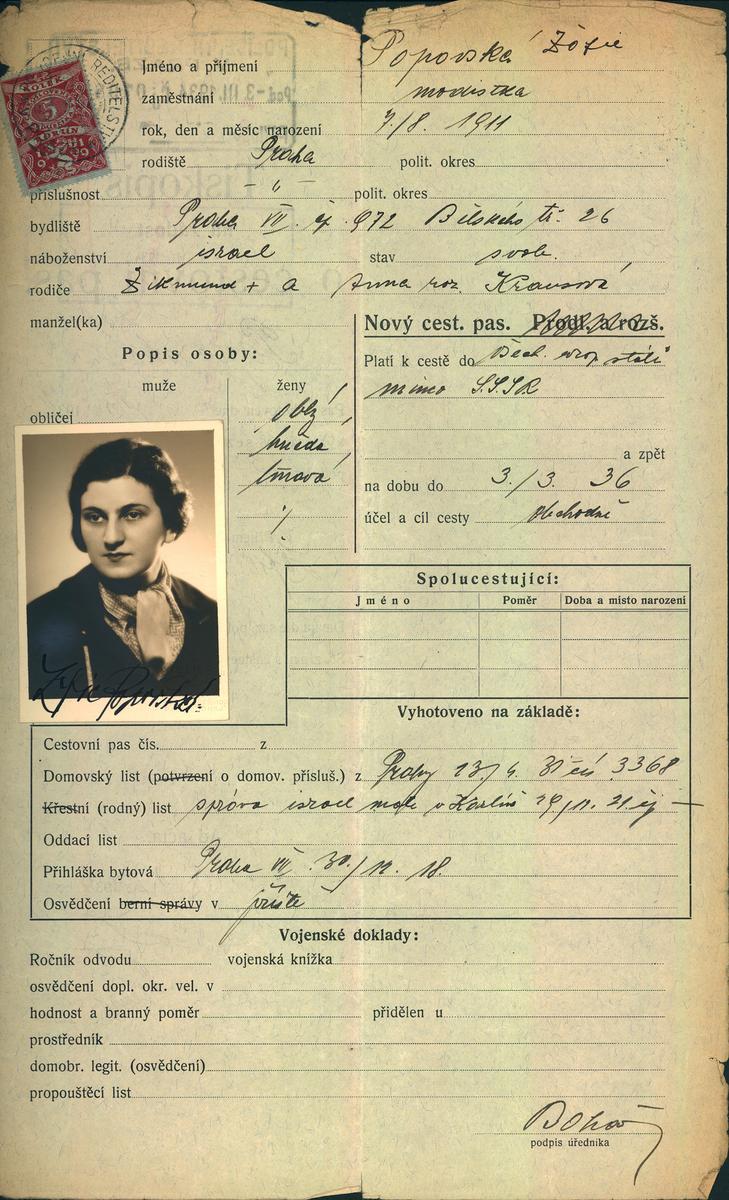 Jméno a příjmení Popovská Žofie
zaměstnání modistka
rok, den a měsíc narození 7./8. 1911
rodiště Praha polit. okres
příslušnost — „ — polit. okres
bydliště Praha VII. čp. 972 Bělského tř. 26
náboženství israel stav svob.
rodiče Zikmund + a Anna roz. Krausová
manžel(ka)
Nový cest. pas. Prodl. a rozš.
Popis osoby:
Platí k cestě do všech. evrop států
muže ženy
mimo SSSR
obličej oblý
hnědá
a zpět
tmavá
na dobu do 3./3. 36
účel a cíl cesty obchodně
Spolucestující:
Jméno Poměr Doba a místo narození
Žofie Popovská
Vyhotoveno na základě:
Cestovní pas čís. z
Domovský list (potvrzení o domov. přísluš.) z Prahy 13/4. 31 čís 3368
Křestní (rodný) list správa israel matr v Karlíně 29/11. 21. čj —
Oddací list
Přihláška bytová Praha VII. 30/11. 18.
Osvědčení berní správy v
Vojenské doklady:
Ročník odvodu vojenská knížka
osvědčení dopl. okr. vel. v
hodnost a branný poměr přidělen u
prostředník
domobr. legit. (osvědčení)
propouštěcí list
podpis úředníka